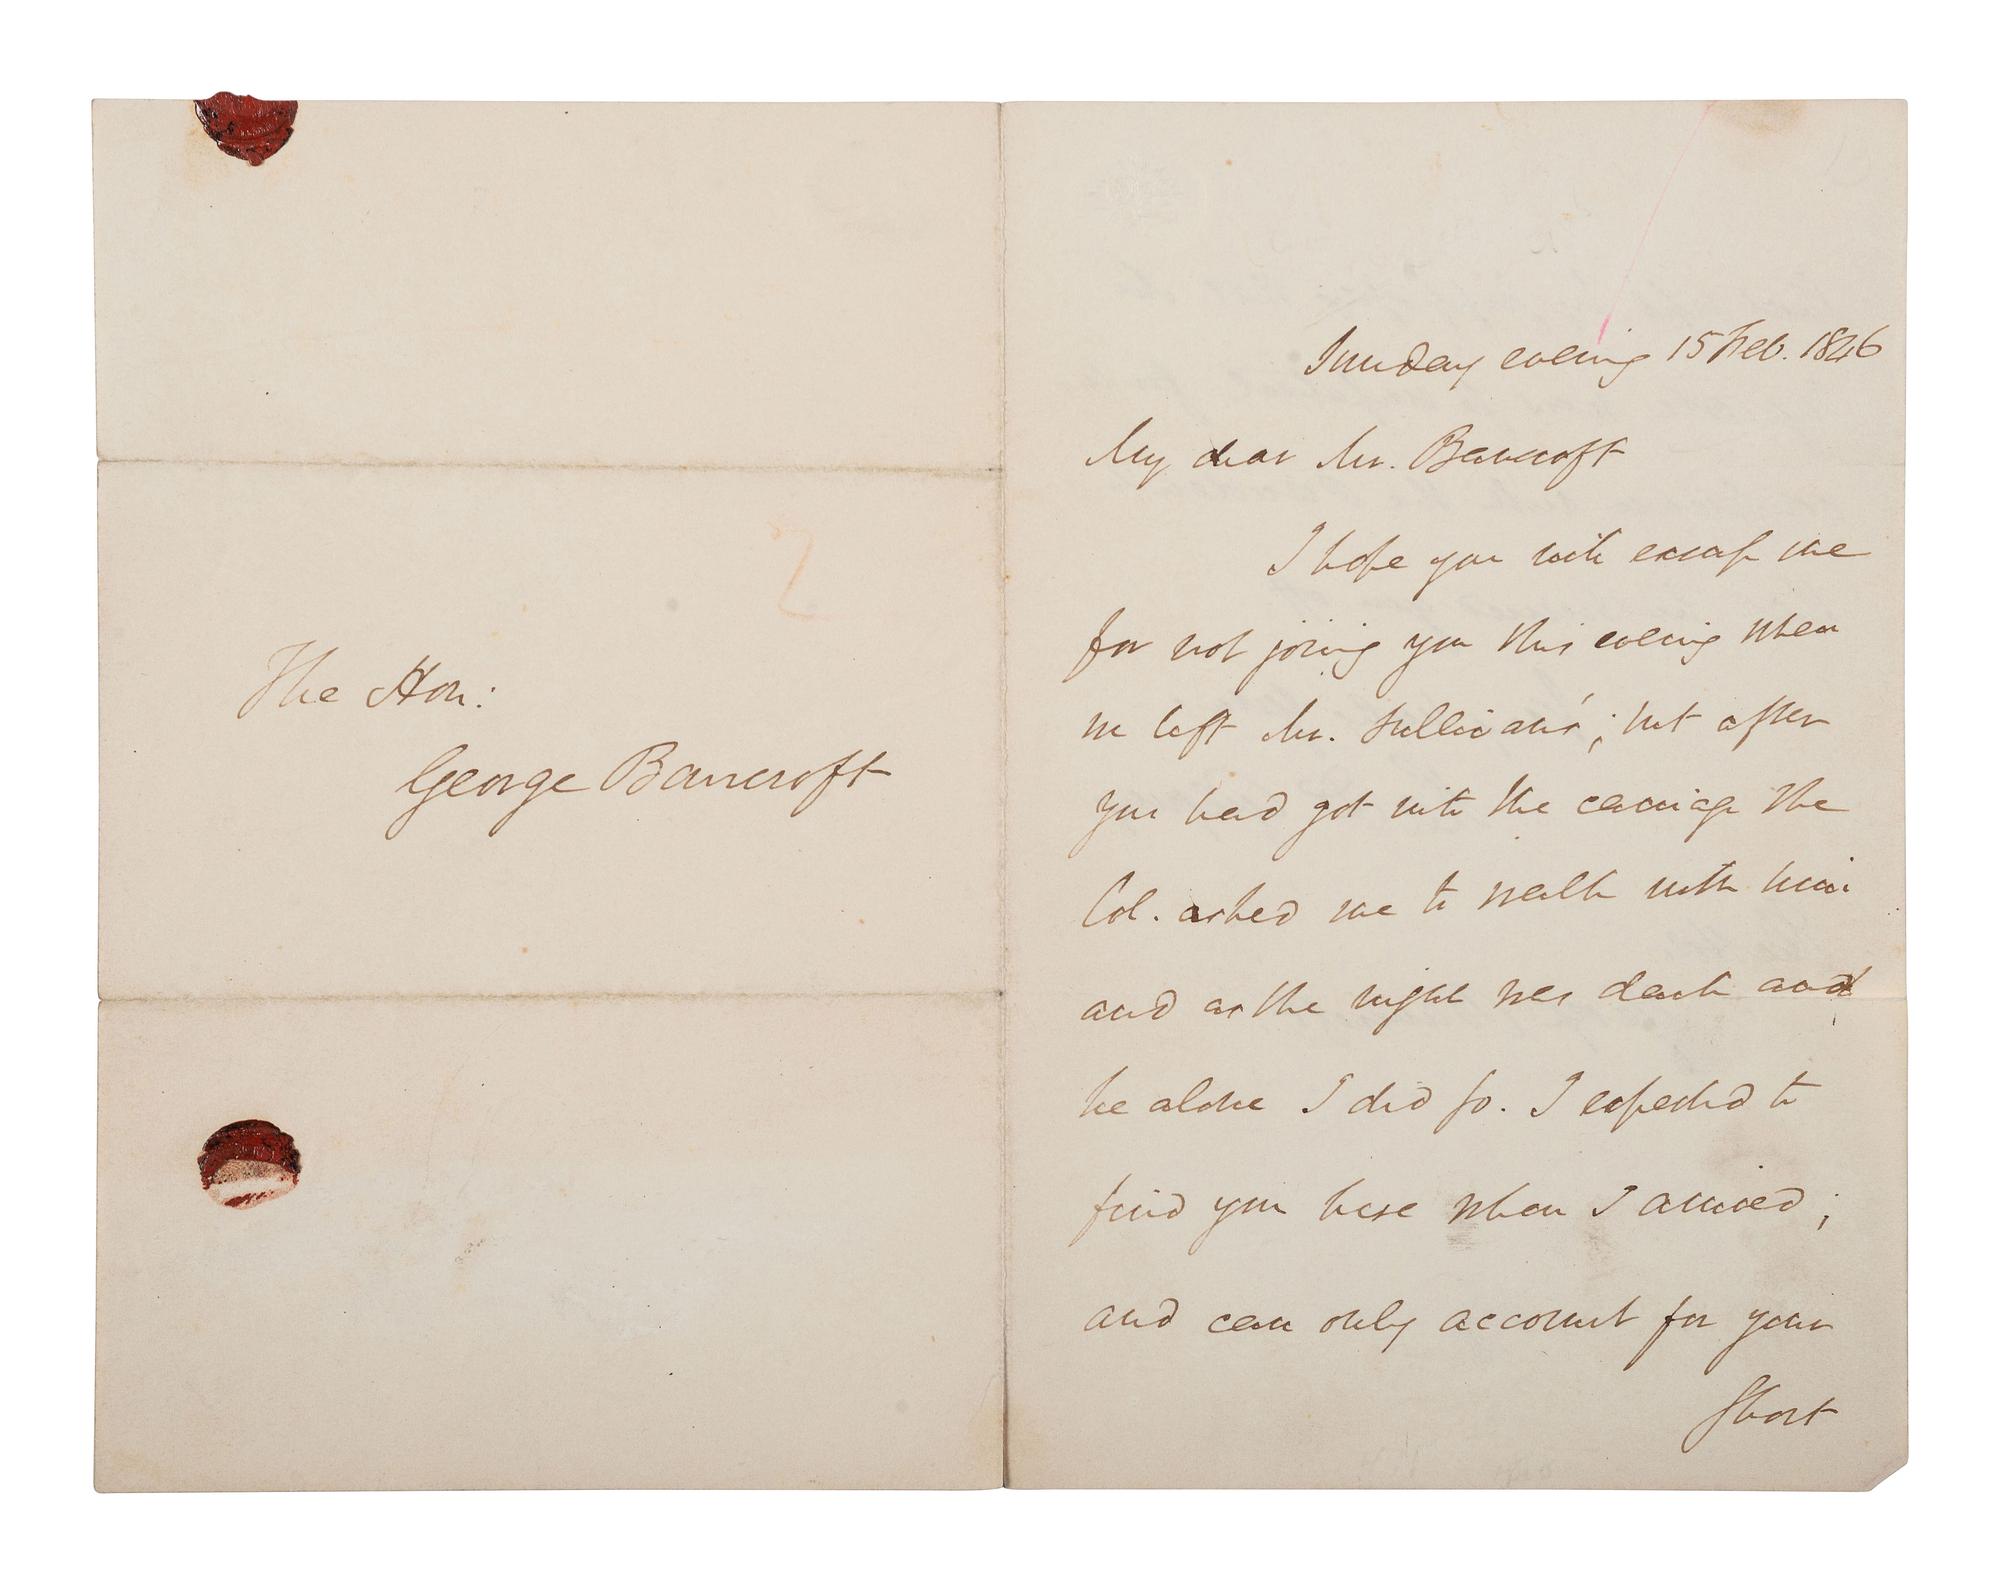 The Hon:
George Bancroft
2
Sunday evening 15 Feb. 1846
My dear Mr. Bancroft
I hope you will excuse me
for not joining you this evening when
we left Mr. Sullivan's; but after
you had got into the carriage the
Col. asked me to walk with him
and as the night was dark and
he alone I did so. I expected to
find you here when I arrived;
and can only account for your
short